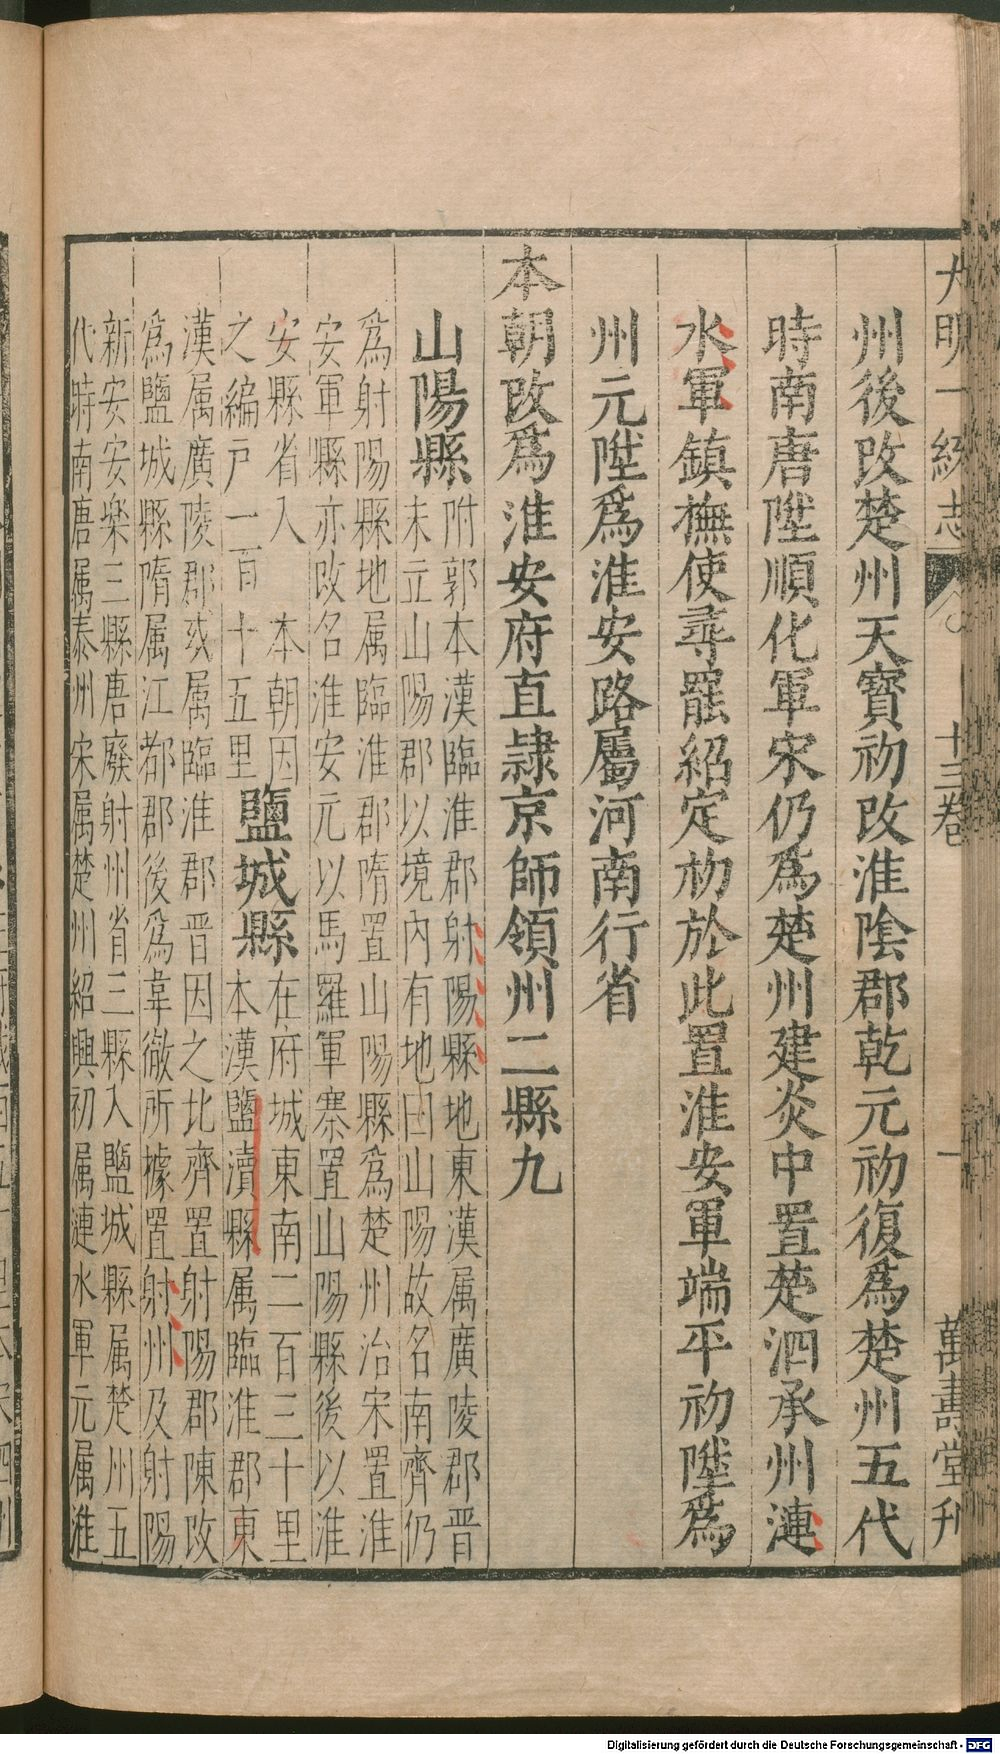 大明一統志 十三卷 一 萬壽堂刋
州後改楚州天寳初改淮隂郡乾元初復爲楚州五代
時南唐陞順化軍宋仍爲楚州建炎中置楚泗承州漣
水軍鎮撫使尋罷紹定初於此置淮安軍端平初陞爲
州元陞爲淮安路屬河南行省
本朝改爲淮安府直隷京師領州二縣九
山陽縣
附郭本漢臨淮郡射陽縣地東漢属廣陵郡晋
未立山陽郡以境内有地曰山陽故名南齊仍
爲射陽縣地属臨淮郡隋置山陽縣爲楚州治宋置淮
安軍縣亦改名淮安元以馬羅軍寨置山陽縣後以淮
安縣省入 本朝因
之編戸一百十五里
鹽城縣
在府城東南二百三十里
本漢鹽瀆縣属臨淮郡東
漢属廣陵郡或属臨淮郡晋因之北齊置射陽郡陳改
爲鹽城縣隋属江都郡後爲韋徹所據置射州及射陽
新安安樂三縣唐廢射州省三縣入鹽城縣属楚州五
代時南唐属泰州宋属楚州紹興初属漣水軍元属淮
Digitalisierung gefördert durch die Deutsche Forschungsgemeinschaft - DFG